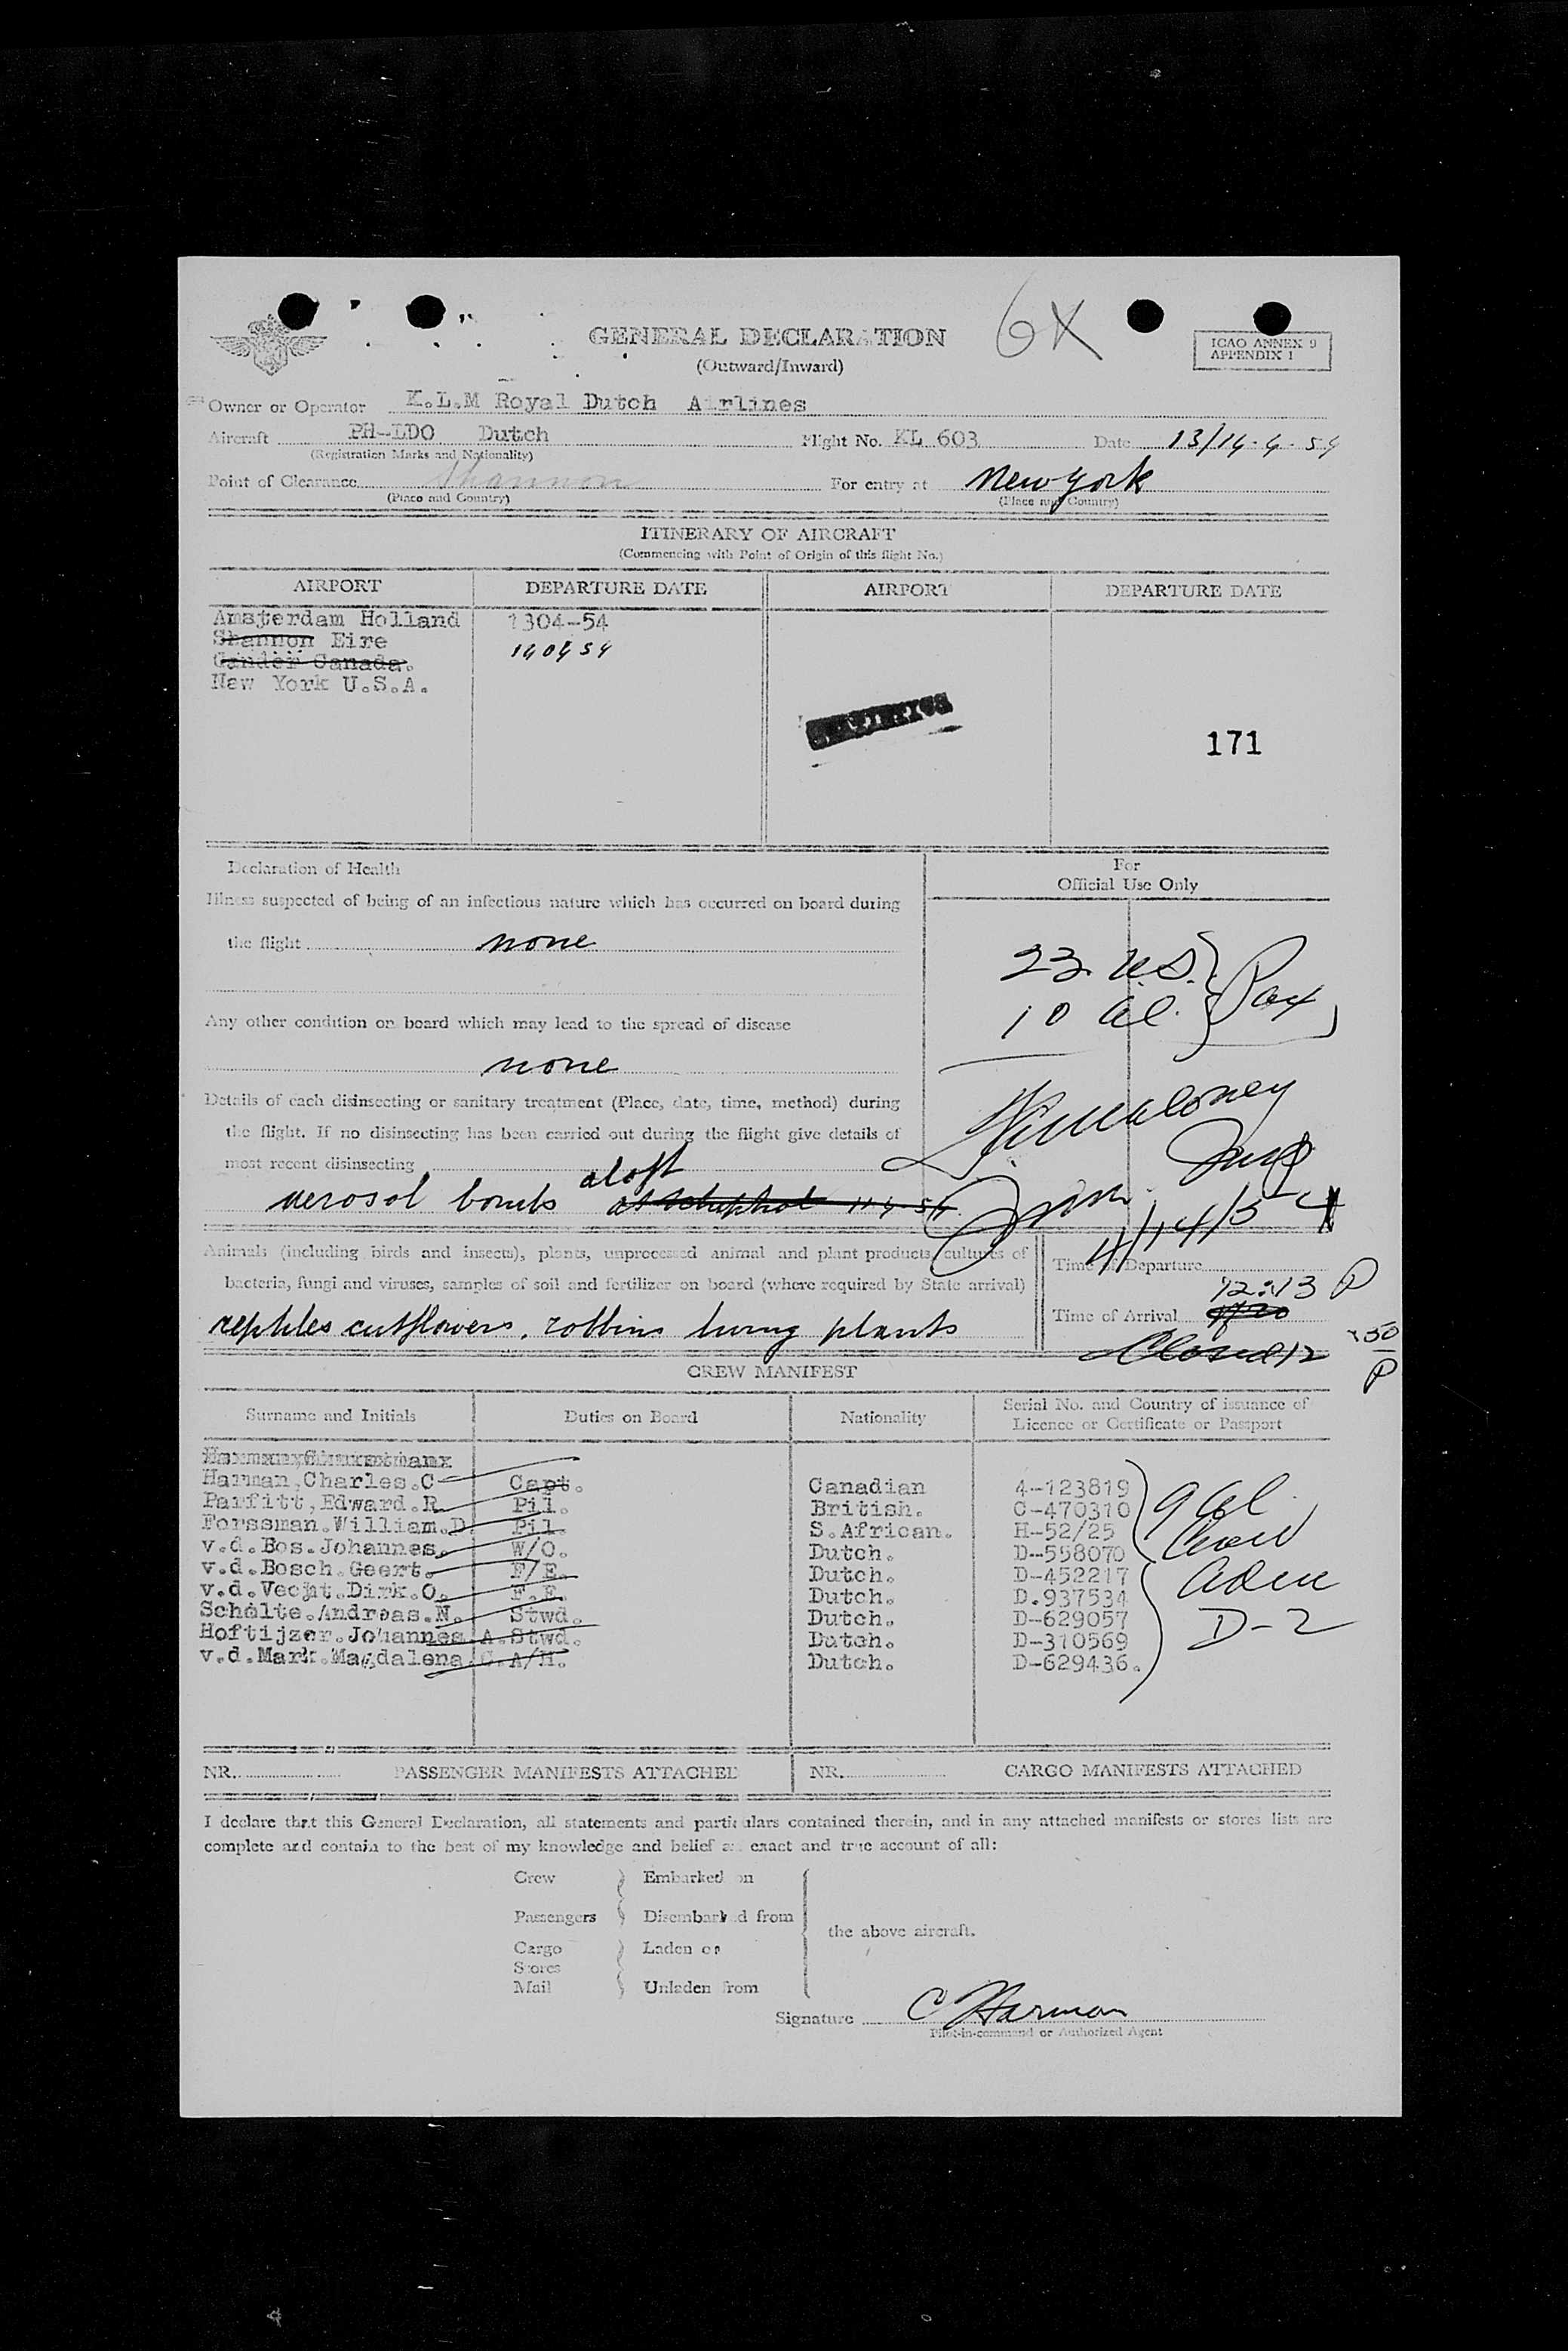 6X
GENERAL DECLARATION
(Outward/Inward)
ICAO ANNEX 9
APPENDIX 1
Owner or Operator K.L.M Royal Dutch Airlines
Aircraft PH-LDO Dutch Flight No. KL 603 Date 13/14-4-54
(Registration Marks and Nationality)
Point of Clearance Shannon For entry at New York
(Place and Country) (Place and Country)
ITINERARY OF AIRCRAFT
(Commencing with Point of Origin of this flight No.)
AIRPORT DEPARTURE DATE AIRPORT DEPARTURE DATE
Amsterdam Holland 1304-54
Shannon Eire 140454
Gander Canada.
New York U.S.A.
171
Declaration of Health
For
Official Use Only
Illness suspected of being of an infectious nature which has occurred on board during
the flight none
23 U.S.
10 al. Pax
Any other condition on board which may lead to the spread of disease
none
Details of each disinsecting or sanitary treatment (Place, date, time, method) during
the flight. If no disinsecting has been carried out during the flight give details of
most recent disinsecting
aerosol bombs aloft at Schiphol
4/14/54
Animals (including birds and insects), plants, unprocessed animal and plant products, cultures of
bacteria, fungi and viruses, samples of soil and fertilizer on board (where required by State arrival)
reptiles cutflowers, robbins living plants
Time of Departure
Time of Arrival 12:13 P
Closed 12
50
P
CREW MANIFEST
Surname and Initials Duties on Board Nationality Serial No. and Country of issuance of
Licence or Certificate or Passport
Harman, Charles.C Capt. Canadian 4-123819
Parfitt, Edward.R. Pil. British. C-470310
Forssman.William.D. Pil. S.African. H-52/25
v.d.Bos.Johannes. W/O. Dutch. D-558070
v.d.Bosch.Geert. F/E. Dutch. D-452217
v.d.Vecht.Dirk.O. F.E. Dutch. D.937534
Scholte.Andreas.N. Stwd. Dutch. D-629057
Hoftijzer.Johannes.A.Stwd. Dutch. D-310569
v.d.Mark.Magdalena.C.A/H. Dutch. D-629436.
9 al.
Crew
adm
D-2
NR. PASSENGER MANIFESTS ATTACHED NR. CARGO MANIFESTS ATTACHED
I declare that this General Declaration, all statements and particulars contained therein, and in any attached manifests or stores lists are
complete and contain to the best of my knowledge and belief an exact and true account of all:
Crew Embarked on
Passengers Disembarked from
the above aircraft.
Cargo Laden on
Stores
Mail Unladen from
Signature C Harman
Pilot-in-command or Authorized Agent